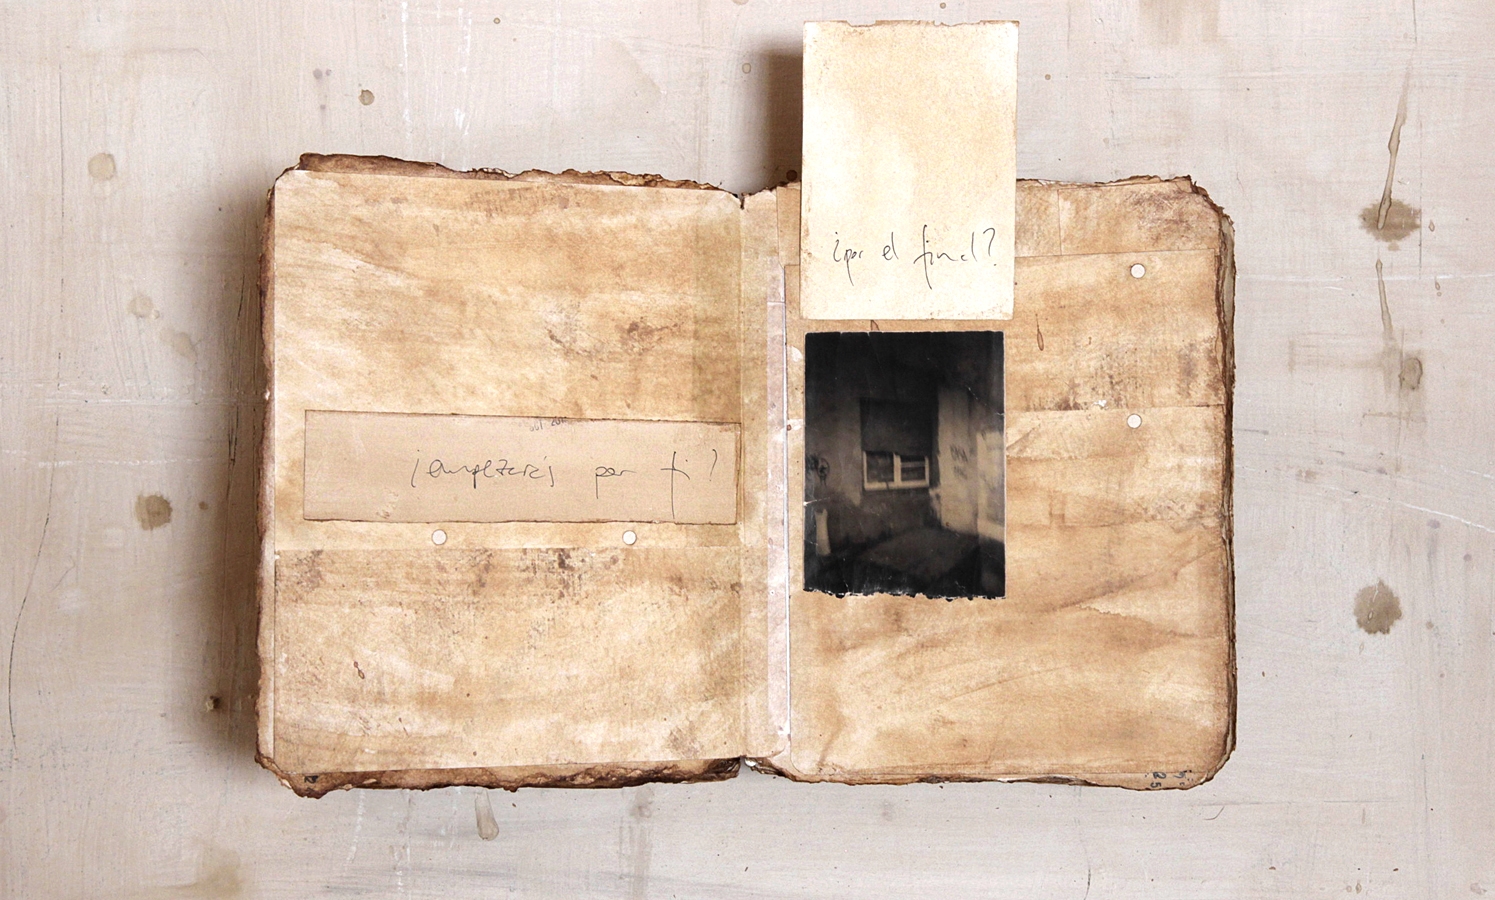 ¿empezarás por fi?
¿por el final?